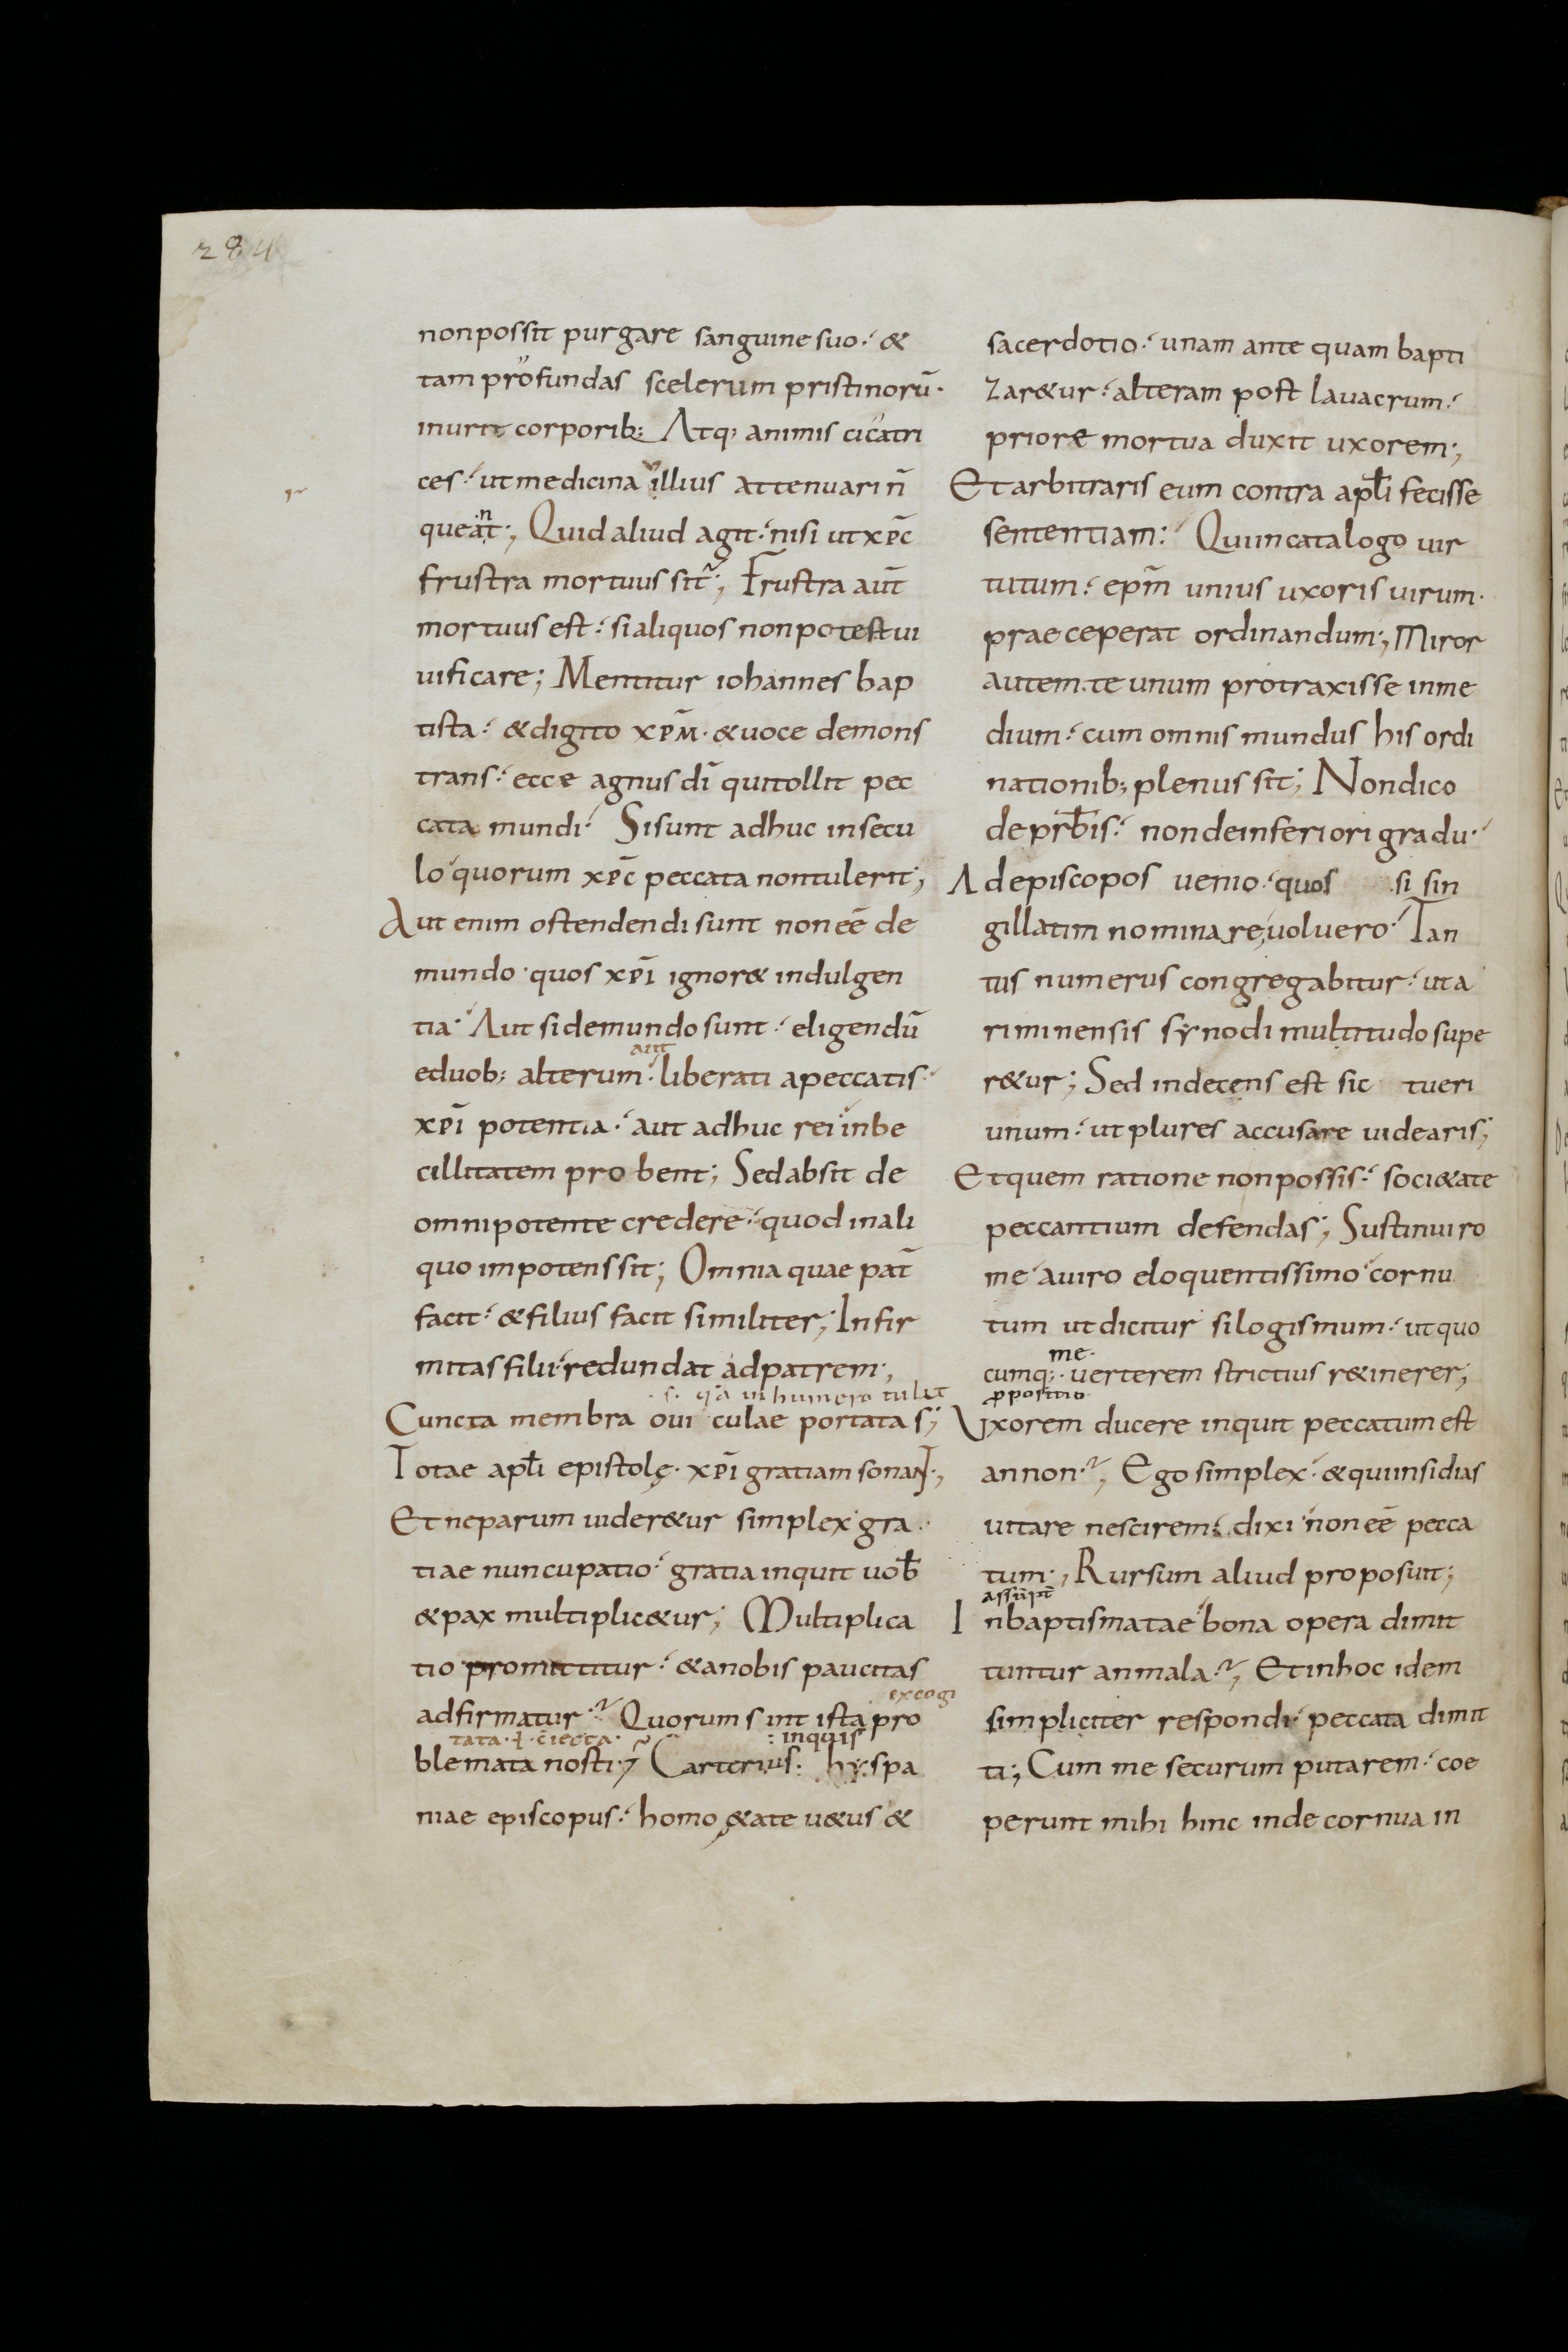 284
nonpossit purgare sanguine suo· &
tam profundas scelerum pristinorū·
inurit corporib; Atq; animis cicatri
ces· ut medicina illius attenuari n̄
queant; Quid aliud agit· nisi ut xp̄c
frustra mortuus sit; Frustra aut̄
mortuus est· si aliquos non potest ui
uificare; Mentitur iohannes bap
tista· & digito xp̄m· & uoce demons
trans· ecce agnus dī qui tollit pec
cata mundi· Si sunt adhuc in secu
lo quorum xp̄c peccata non tulerit;
Aut enim ostendendi sunt non eē de
mundo· quos xp̄i ignor& indulgen
tia· Aut si de mundo sunt· eligendū
aut
e duob; alterum· liberati a peccatis·
xp̄i potentia· aut adhuc rei inbe
cillitatem probent; Sed absit de
omnipotente credere· quod in ali
quo impotens sit; Omnia quae pat̄
facit· & filius facit similiter; Infir
mitas filii· redundat ad patrem;
·s· q̄a in humero tulit
Cuncta membra oui culae portata s̄;
Totae apl̄i epistolę· xp̄i gratiam sonant;
Et ne parum uider&ur simplex gra
tiae nuncupatio· gratia inquit uob̄
& pax multiplic&ur; Multiplica
tio promittitur· & a nobis paucitas
excogi
adfirmatur· Quorum sint ista pro
tata· ł· c̄iecta· : inquis
blemata nosti; Carterius: hyspa
niae episcopus· homo & ęate u&us &
sacerdotio· unam ante quam bapti
zar&ur· alteram post lauacrum·
priore mortua duxit uxorem;
Et arbitraris eum contra apl̄i fecisse
sententiam: Qui in catalogo uir
tutum· ep̄m unius uxoris uirum·
praeceperat ordinandum; Miror
autem· te unum protraxisse in me
dium· cum omnis mundus his ordi
nationib; plenus sit; Non dico
de prb̄is· non de inferiori gradu·
Ad episcopos uenio· quos si sin
gillatim nominare uoluero· Tan
tus numerus congregabitur· ut a
riminensis synodi multitudo supe
r&ur; Sed indecens est sic tueri
unum· ut plures accusare uidearis;
Et quem ratione non possis· soci&ate
peccantium defendas; Sustinui ro
me a uiro eloquentissimo cornu
tum ut dicitur silogismum· ut quo
me·
cumq;· uerterem strictius r&inerer;
ꝓpositio
Uxorem ducere inquit peccatum est
an non·; Ego simplex· & qui insidias
uitare nescirem· dixi non eē pecca
tum·; Rursum aliud proposuit;
assūpt̄
In baptismatae bona opera dimit
tuntur an mala·; Et in hoc idem
simpliciter respondi· peccata dimit
ti; Cum me securum putarem· coe
perunt mihi hinc inde cornua in